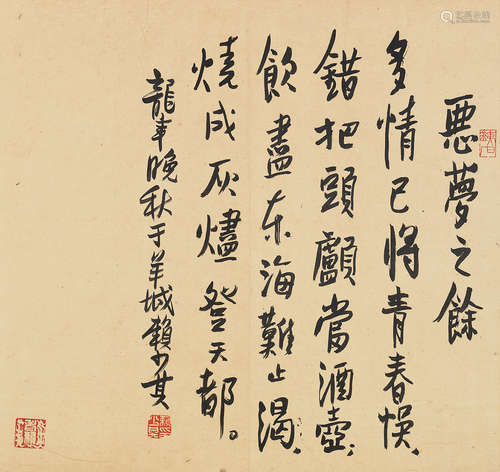 惡夢之餘
多情已將青春悞，
錯把頭顱當酒壺；
飲盡東海難止渴，
燒成灰燼登天都。
龍年晚秋于羊城賴少其